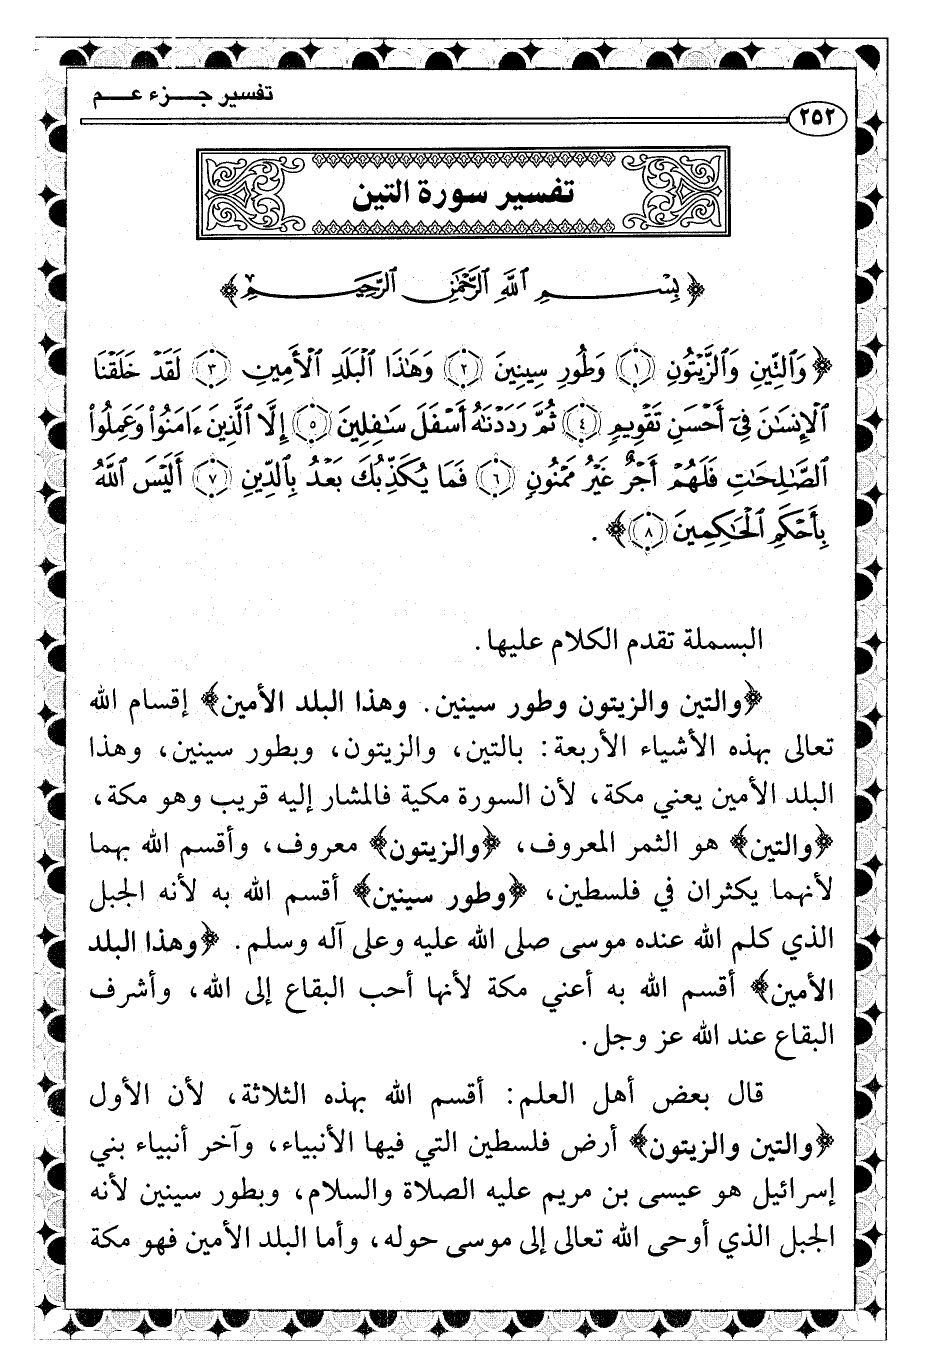 تفسير جـــزء عـــم
٢٥٢
تفسير سورة التين
﴿بِسْمِ ٱللَّهِ ٱلرَّحْمَٰنِ ٱلرَّحِيمِ﴾
﴿وَٱلتِّينِ وَٱلزَّيْتُونِ ۝١ وَطُورِ سِينِينَ ۝٢ وَهَٰذَا ٱلْبَلَدِ ٱلْأَمِينِ ۝٣ لَقَدْ خَلَقْنَا
ٱلْإِنسَٰنَ فِىٓ أَحْسَنِ تَقْوِيمٍ ۝٤ ثُمَّ رَدَدْنَٰهُ أَسْفَلَ سَٰفِلِينَ ۝٥ إِلَّا ٱلَّذِينَ ءَامَنُوا۟ وَعَمِلُوا۟
ٱلصَّٰلِحَٰتِ فَلَهُمْ أَجْرٌ غَيْرُ مَمْنُونٍ ۝٦ فَمَا يُكَذِّبُكَ بَعْدُ بِٱلدِّينِ ۝٧ أَلَيْسَ ٱللَّهُ
بِأَحْكَمِ ٱلْحَٰكِمِينَ ۝٨﴾ .
البسملة تقدم الكلام عليها.
﴿والتين والزيتون وطور سينين. وهذا البلد الأمين﴾ إقسام الله
تعالى بهذه الأشياء الأربعة: بالتين، والزيتون، وبطور سينين، وهذا
البلد الأمين يعني مكة، لأن السورة مكية فالمشار إليه قريب وهو مكة،
﴿والتين﴾ هو الثمر المعروف، ﴿والزيتون﴾ معروف، وأقسم الله بهما
لأنهما يكثران في فلسطين، ﴿وطور سينين﴾ أقسم الله به لأنه الجبل
الذي كلم الله عنده موسى صلى الله عليه وعلى آله وسلم. ﴿وهذا البلد
الأمين﴾ أقسم الله به أعني مكة لأنها أحب البقاع إلى الله، وأشرف
البقاع عند الله عز وجل.
قال بعض أهل العلم: أقسم الله بهذه الثلاثة، لأن الأول
﴿والتين والزيتون﴾ أرض فلسطين التي فيها الأنبياء، وآخر أنبياء بني
إسرائيل هو عيسى بن مريم عليه الصلاة والسلام، وبطور سينين لأنه
الجبل الذي أوحى الله تعالى إلى موسى حوله، وأما البلد الأمين فهو مكة